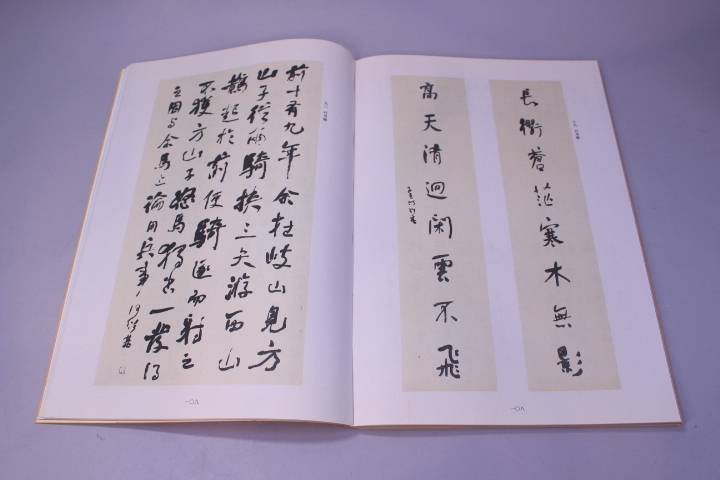 長衢蒼茫寒木無影
高天清迥閑雲不飛
一〇八
前十有九年余在岐山見方
山子從兩騎挾二矢游西山
鵲起於前使騎逐而射之
不獲方山子怒馬獨出一發得
之因與余馬上論用兵事